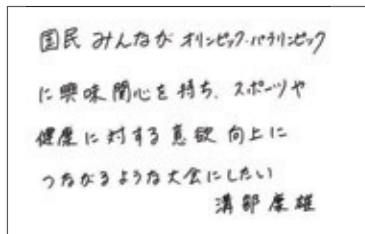 国民みんながオリンピック・パラリンピック
に興味関心を持ち、スポーツや
健康に対する意欲向上に
つながるような大会にしたい
溝部康雄